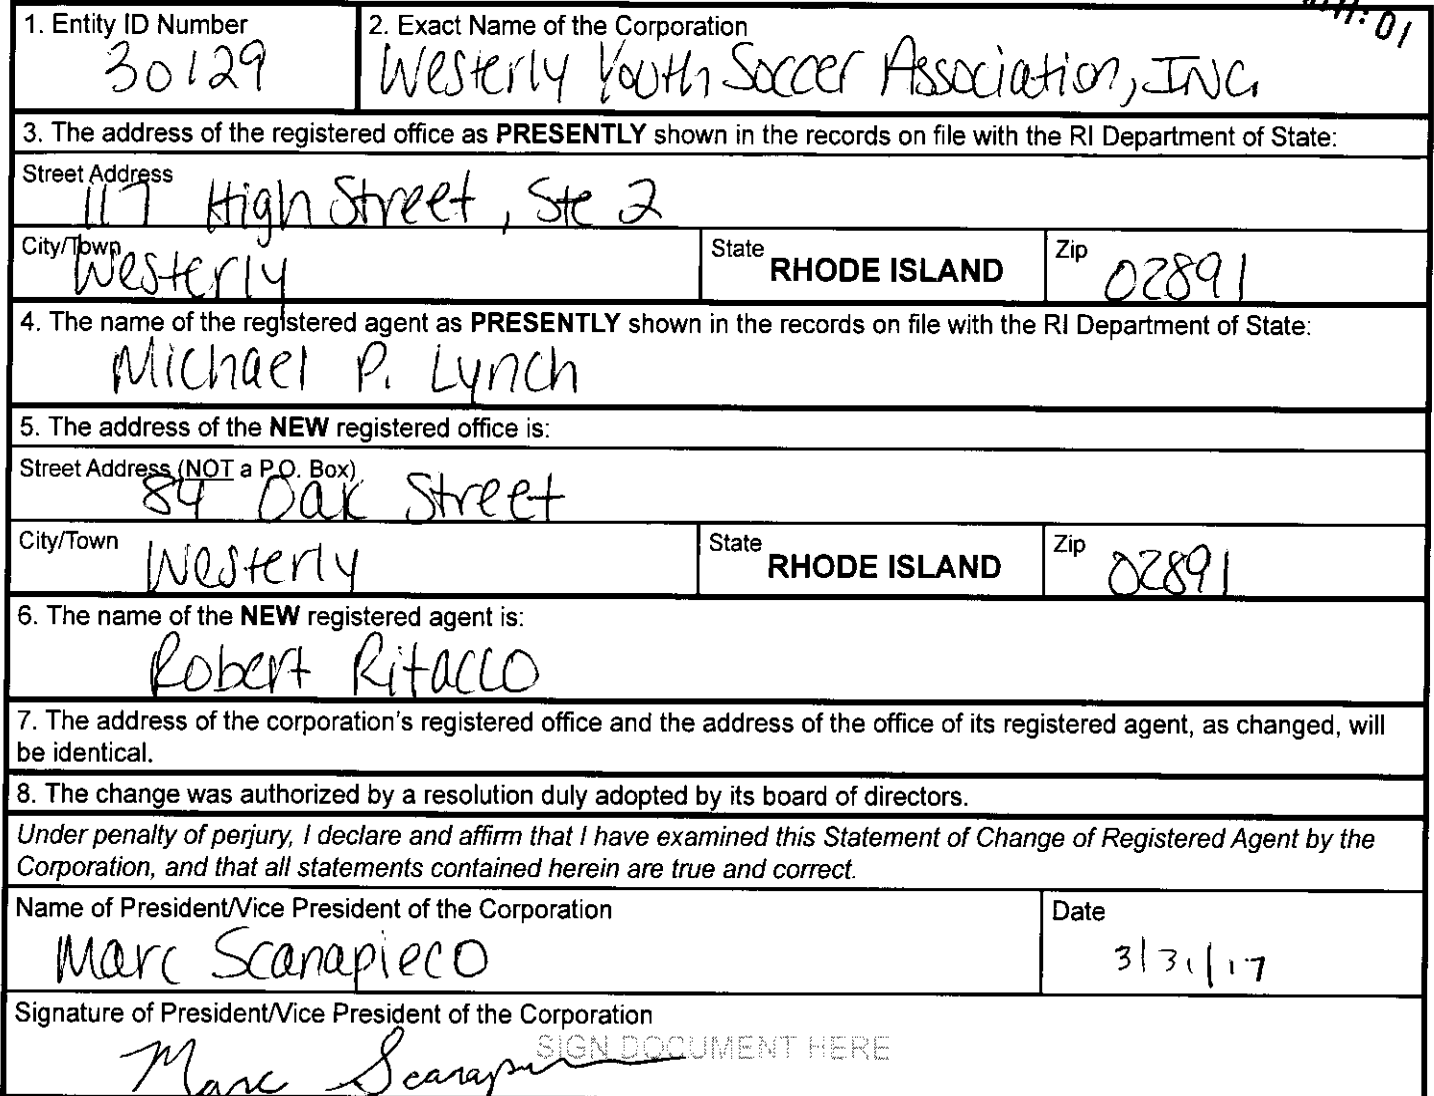 1. Entity ID Number
30129
2. Exact Name of the Corporation
Westerly Youth Soccer Association, INC.
3. The address of the registered office as PRESENTLY shown in the records on file with the RI Department of State:
Street Address
117 High Street, Ste 2
City/Town
Westerly
State
RHODE ISLAND
Zip
02891
4. The name of the registered agent as PRESENTLY shown in the records on file with the RI Department of State:
Michael P. Lynch
5. The address of the NEW registered office is:
Street Address (NOT a P.O. Box)
84 Oak Street
City/Town
Westerly
State
RHODE ISLAND
Zip
02891
6. The name of the NEW registered agent is:
Robert Ritacco
7. The address of the corporation's registered office and the address of the office of its registered agent, as changed, will
be identical.
8. The change was authorized by a resolution duly adopted by its board of directors.
Under penalty of perjury, I declare and affirm that I have examined this Statement of Change of Registered Agent by the
Corporation, and that all statements contained herein are true and correct.
Name of President/Vice President of the Corporation
Marc Scanapieco
Date
3/31/17
Signature of President/Vice President of the Corporation
SIGN DOCUMENT HERE
Marc